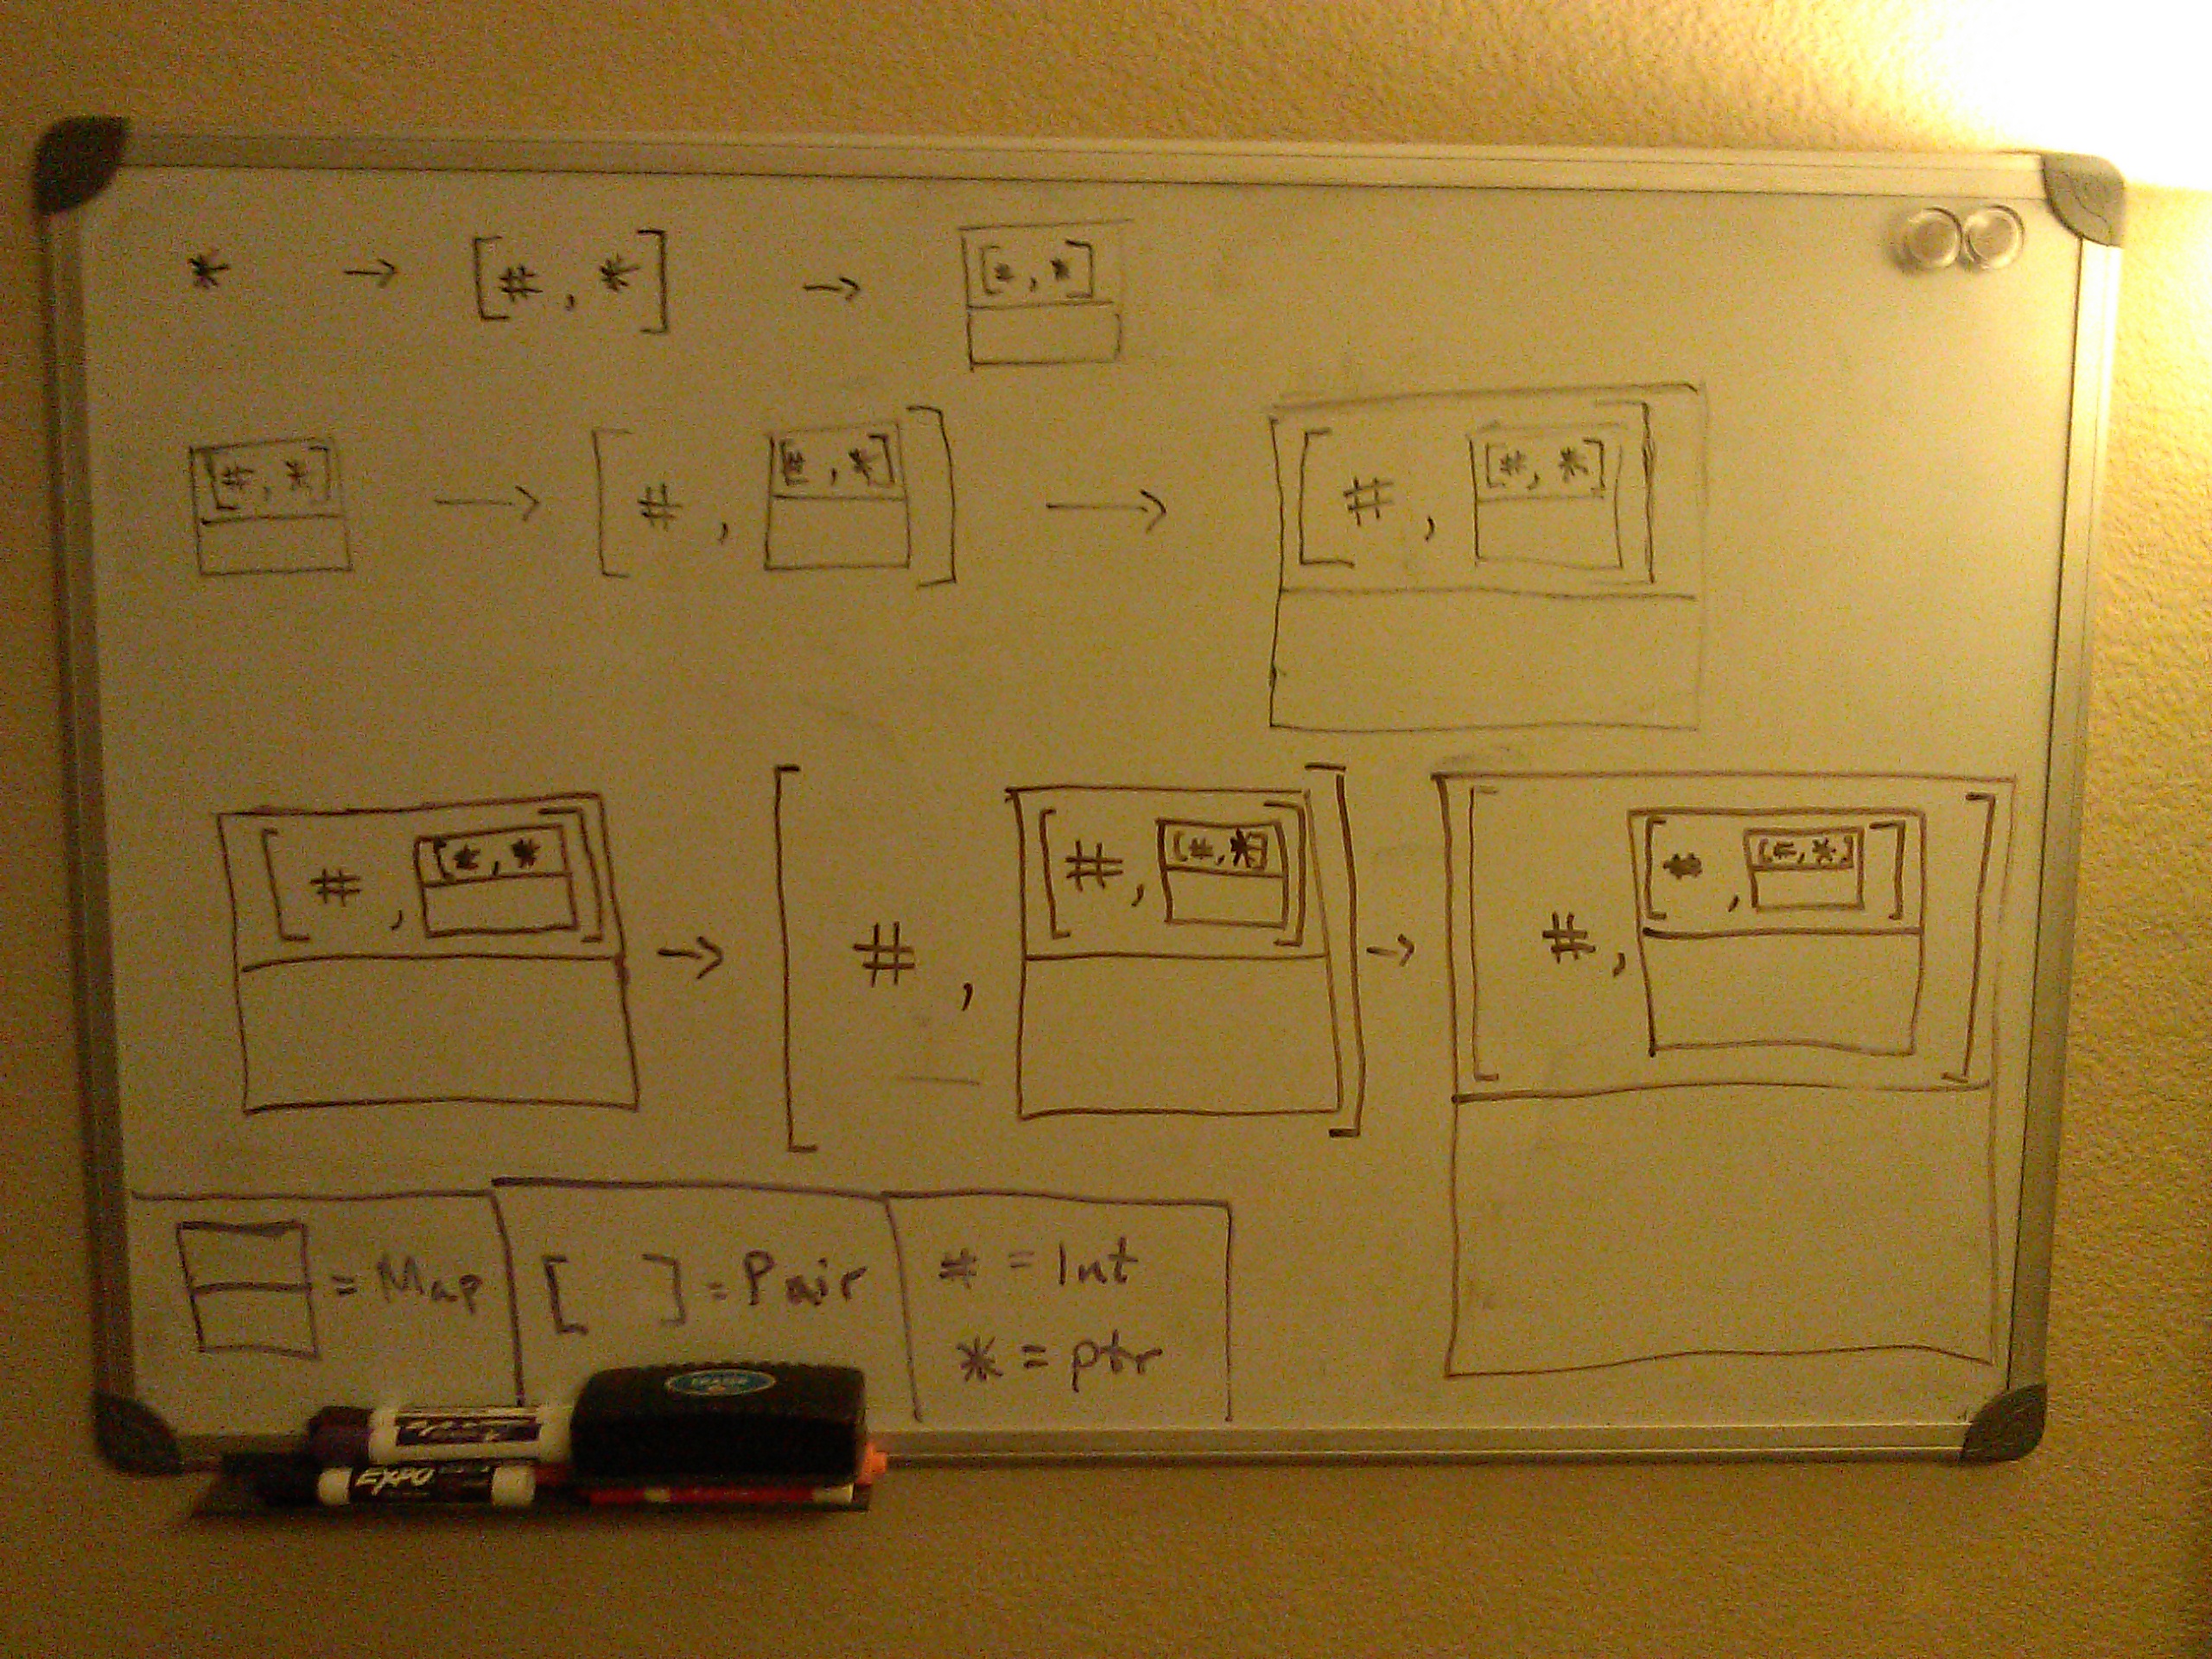 * → [#, *] → [#, *]
[#, *] → [#, [#, *]] → [#, [#, *]]
[#, [#, *]] → [#, [#, [#, *]]] → [#, [#, [#, *]]]
= Map
[ ] = Pair
# = Int
* = ptr
EXPO